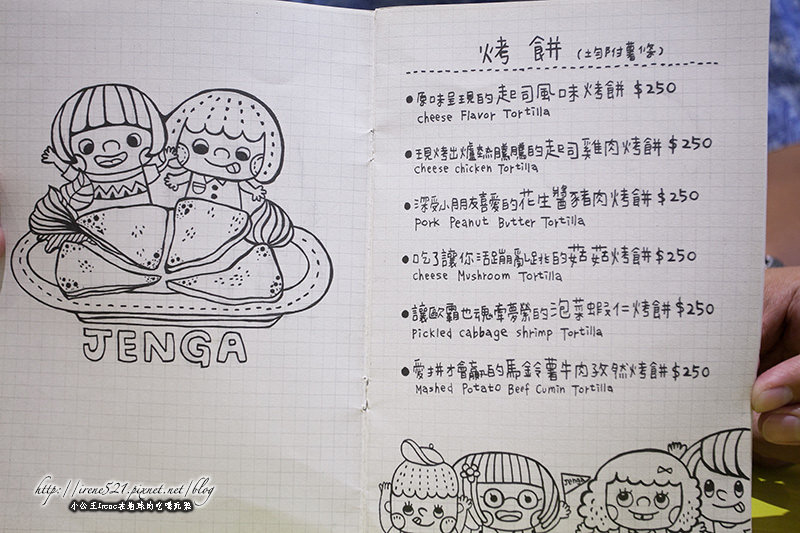 JENGA
烤餅 (均附薯條)
●原味呈現的起司風味烤餅 $250
cheese Flavor Tortilla
●現烤出爐熱騰騰的起司雞肉烤餅 $250
cheese chicken Tortilla
●深受小朋友喜愛的花生醬豬肉烤餅 $250
Pork Peanut Butter Tortilla
●吃了讓你活蹦亂跳的菇菇烤餅 $250
cheese Mushroom Tortilla
●讓歐霸也魂牽夢縈的泡菜蝦仁烤餅 $250
Pickled cabbage shrimp Tortilla
●愛拼才會贏的馬鈴薯牛肉孜然烤餅 $250
Mashed Potato Beef Cumin Tortilla
Jenga
http://irene521.pixnet.net/blog
小公主Irene在地球的吃喝玩樂